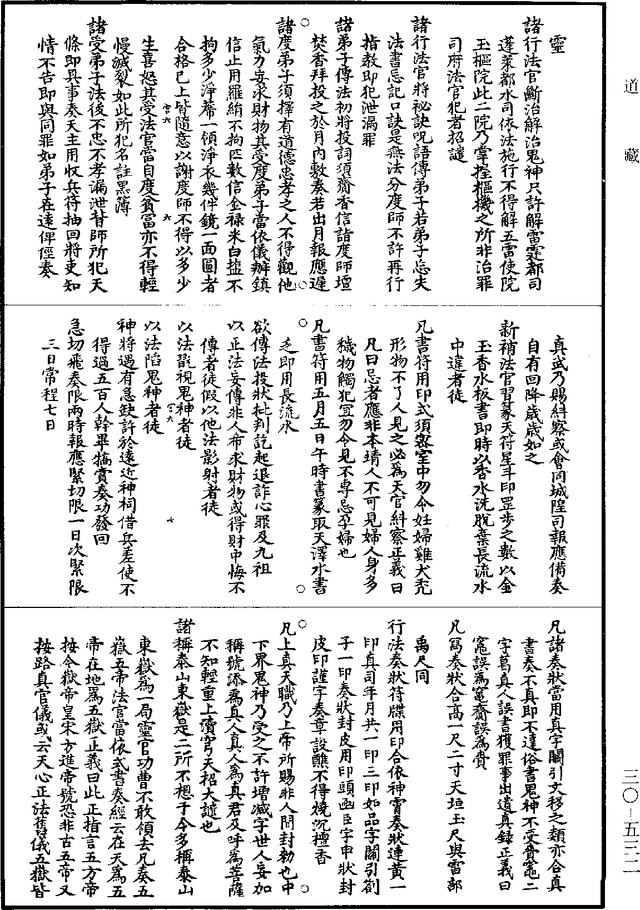 道藏
三〇-五三二
靈
諸行法官斷治解治鬼神只許解雷霆都司
蓬萊都水司依法施行不得解五雷使院
玉樞院此二院乃掌握樞機之所非治罪
司府法官犯者招譴
諸行法官將祕訣呪語傳弟子若弟子忘失
法書忘記口訣是無法分度師不許再行
指教即犯泄漏罪
諸弟子傳法初將投詞須齋香信詣度師壇
焚香拜投之於月內數奏若出月報應遲
諸度弟子須擇有道德忠孝之人不得觀他
氣力妄求財物其受度弟子當依儀辦鎮
信止用羅絹不拘匹數信金祿米白鹽不
拘多少淨蓆一領淨衣幾件鏡一面圓者
合格已上皆隨意以謝度師不得以多少
生喜怒其受法官當自度貧富亦不得輕
慢滅裂如此所犯名註黑薄
諸受弟子法後不忠不孝漏泄對師所犯天
條即具事奏天主用收兵符抽回將吏知
情不告即與同罪如弟子在遠俾徑奏
真武乃賜糾察或會同城隍司報應備奏
自有回降歲歲如之
新補法官習篆天符星斗印罡步之數以金
玉香水板書即時以香水洗脫棄長流水
中違者徒
凡書符用印式須密室中勿令妊婦雞犬禿
形物不了人見之必為天官糾察正義曰
凡曰忌者應非本靖人不可見婦人身多
穢物觸犯宜勿令見不專忌孕婦也
凡書符用五月五日午時書篆取天澤水書
乏即用長流水
欲傳法投狀批判訖起退詐心罪及九祖
以正法妄傳非人希求財物或得財中悔不
傳者徒假以他法影射者徒
以法翫視鬼神者徒
以法陷鬼神者徒
神將遇有急缺許於遠近神祠借兵差使不
得過五百人幹畢犒賞奏功發回
急切飛奏限兩時報應緊切限一日次緊限
三日常程七日
凡諸奏狀當用真字關引文移之類亦合真
書奏不真即不達俗書鬼神不受費竈二
字葛真人誤書獲罪事出遺真錄正義曰
竈誤為寵齋誤為賫
凡寫奏狀合高一尺二寸天垣玉尺與雷部
禹尺同
行法奏狀符牒用印合依神霄奏狀連黃一
印真司年月共一印三印如品字關引劄
子一印奏狀封皮用印頭函臣字申狀封
皮印謹字奏章設醮不得燒沉檀香
凡上真天職乃上帝所賜非人間封勅也中
下界鬼神乃受之不許增減字世人妄加
稱號添為真人真人為真君及呼為菩薩
不知輕重上瀆穹天招大譴也
諸稱泰山東嶽是二所不想于今多稱泰山
東嶽為一局靈官功曹不敢領去凡奏五
嶽五帝法官當依式書奏經云在天為五
帝在地為五嶽正義曰此正指言五方帝
按今嶽帝皇宋方進帝號恐非古五帝又
按路真官儀或云天心正法舊儀五嶽皆